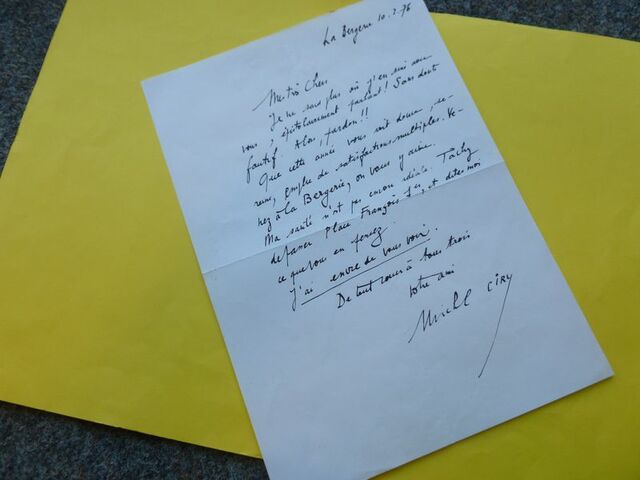 La Bergerie 10.2.76
Mes très Chers
Je ne sais plus où j'en suis avec
vous, épistolairement parlant! Sans doute
fautif. Alors, pardon!!
Que cette année vous soit douce, se-
reine, emplie de satisfactions multiples. Ve-
nez à la Bergerie, on vous y aime.
Ma santé n'est pas encore idéale. Tachez
de passer Place François Ier, et dites moi
ce que vous en pensez.
J'ai envie de vous voir.
De tout coeur à tous trois
votre ami
Michel CIRY